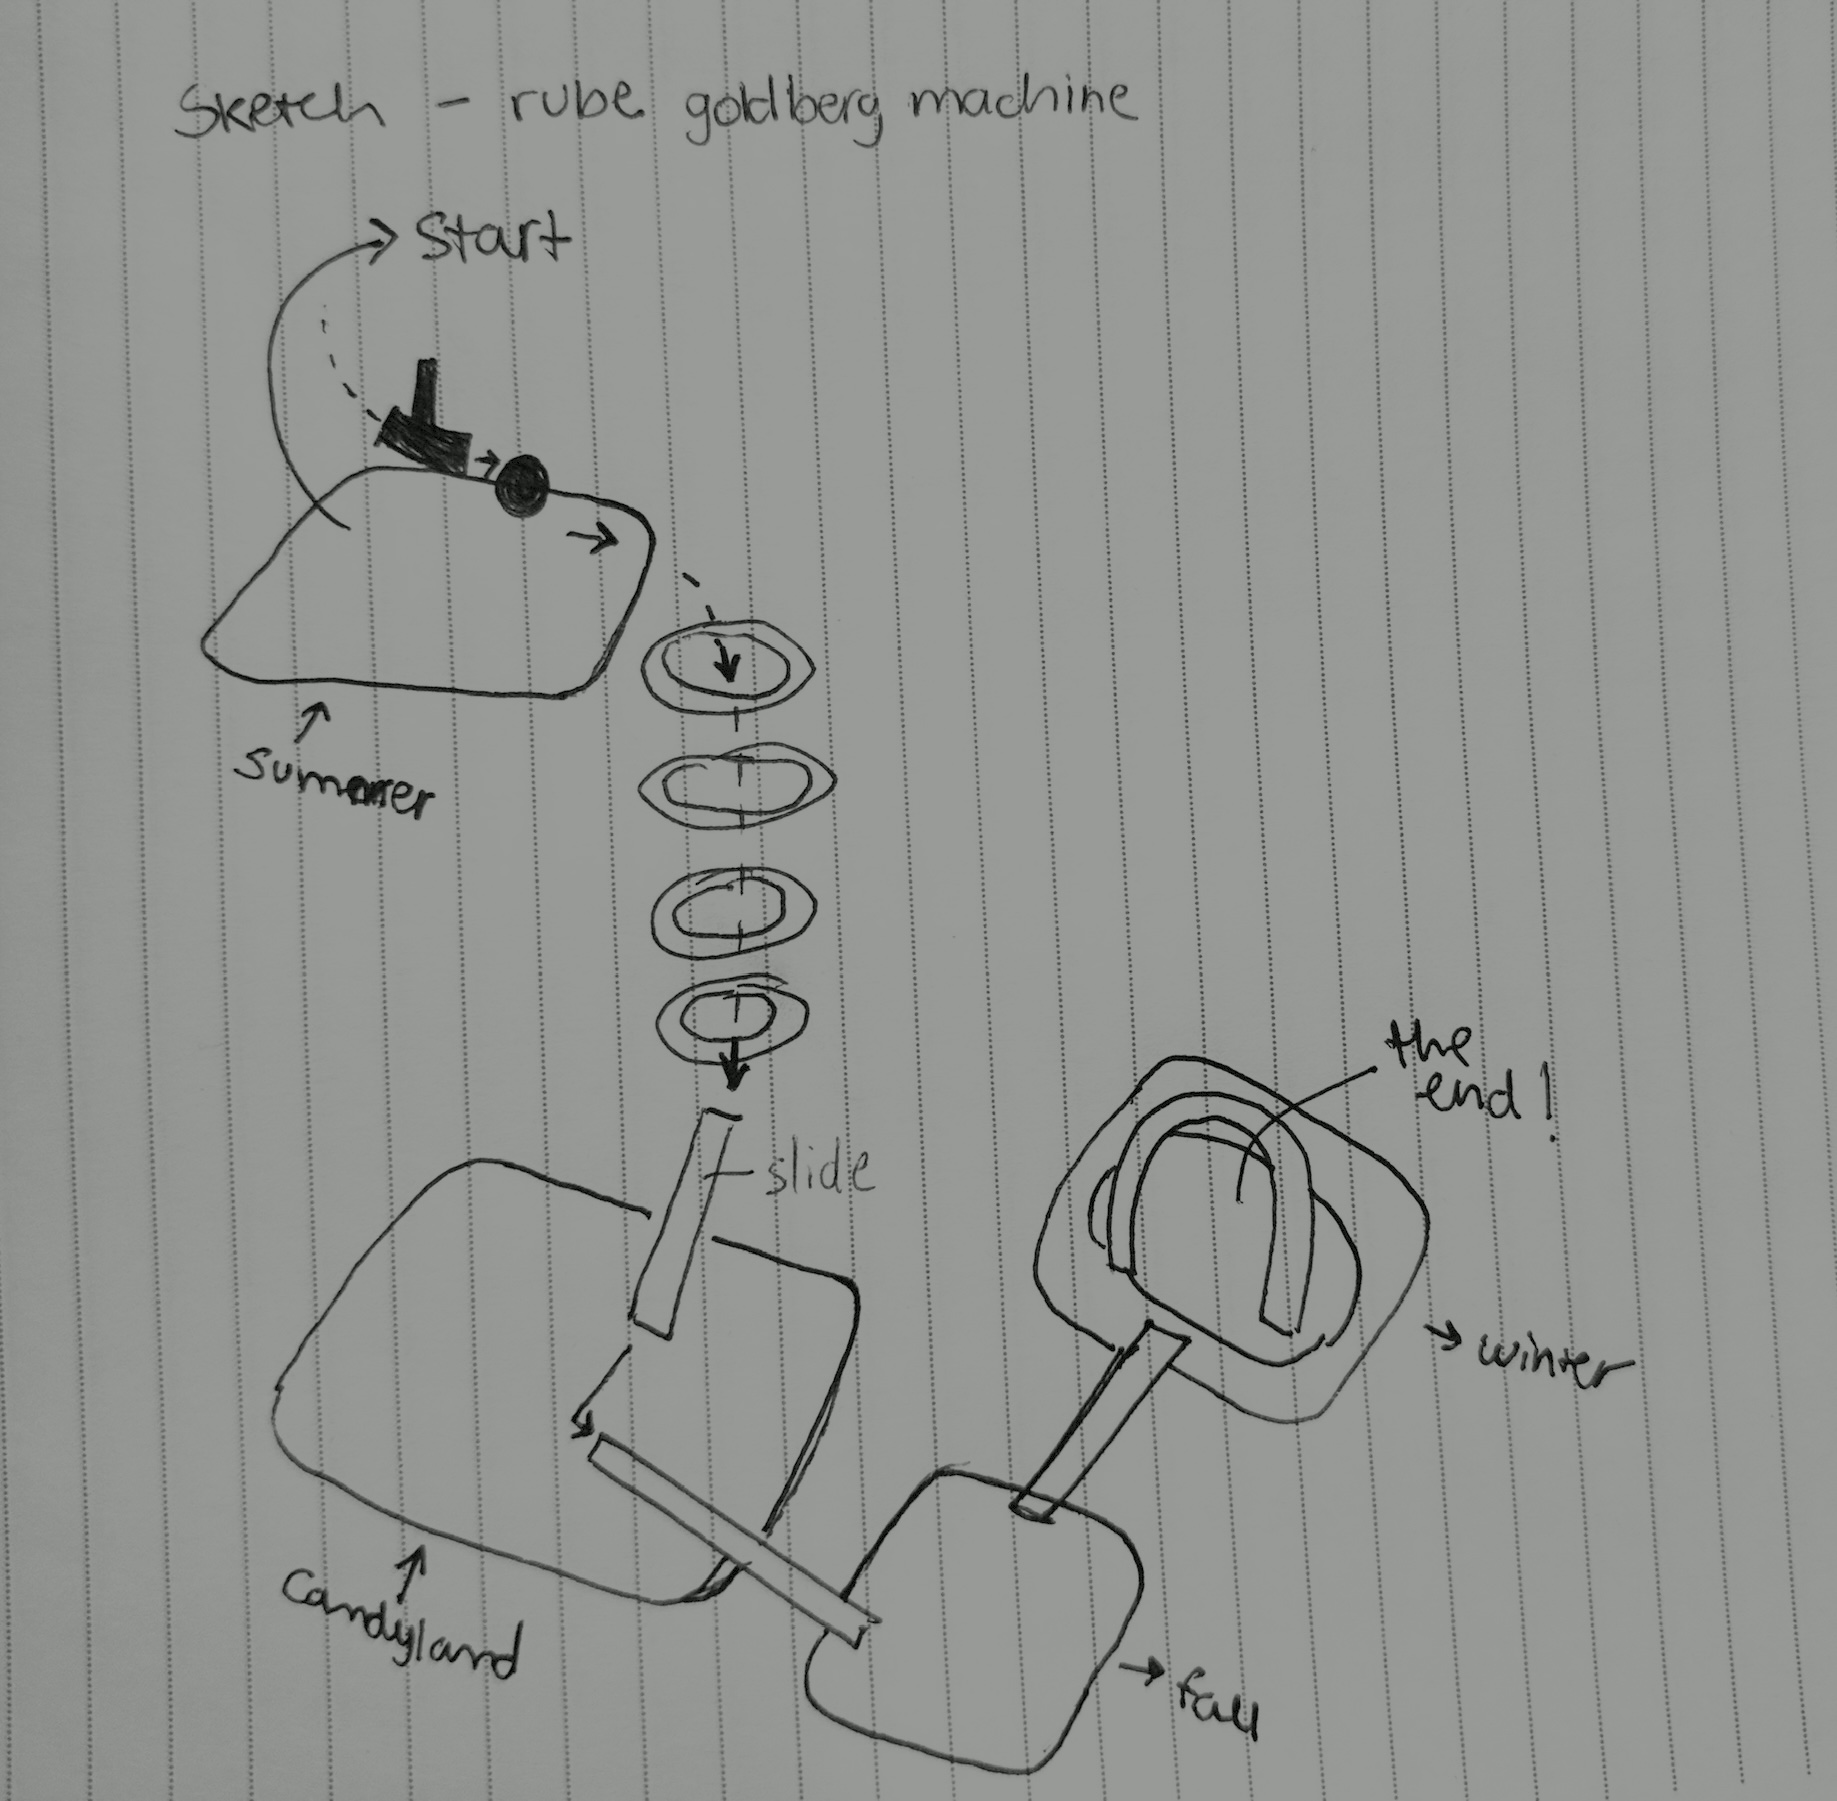 Sketch - rube goldberg machine
Start
Summer
slide
the
end!
winter
Candyland
fall